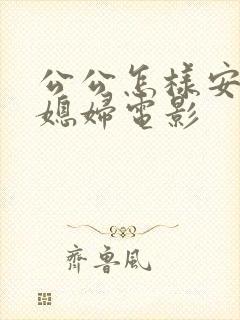 公公怎样安
媳婦電影
齊魯風